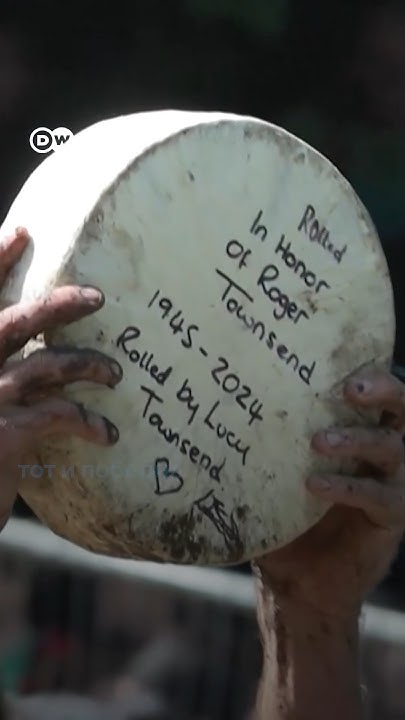 DW
Rolled
In Honor
Of Roger
Townsend
1945-2024
Rolled by Lucy
Townsend
ТОТ И